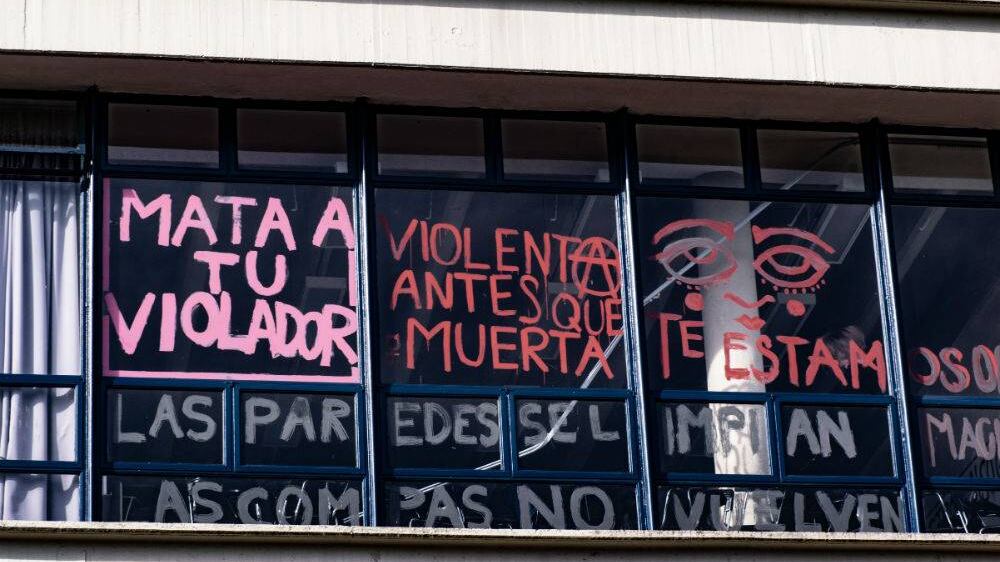 MATA A
TU
VIOLADOR
VIOLENTA
ANTES QUE
MUERTA
TE ESTAM OSO
LAS PAREDES SE LIMPIAN
MAG
LAS COMPAS NO VUELVEN